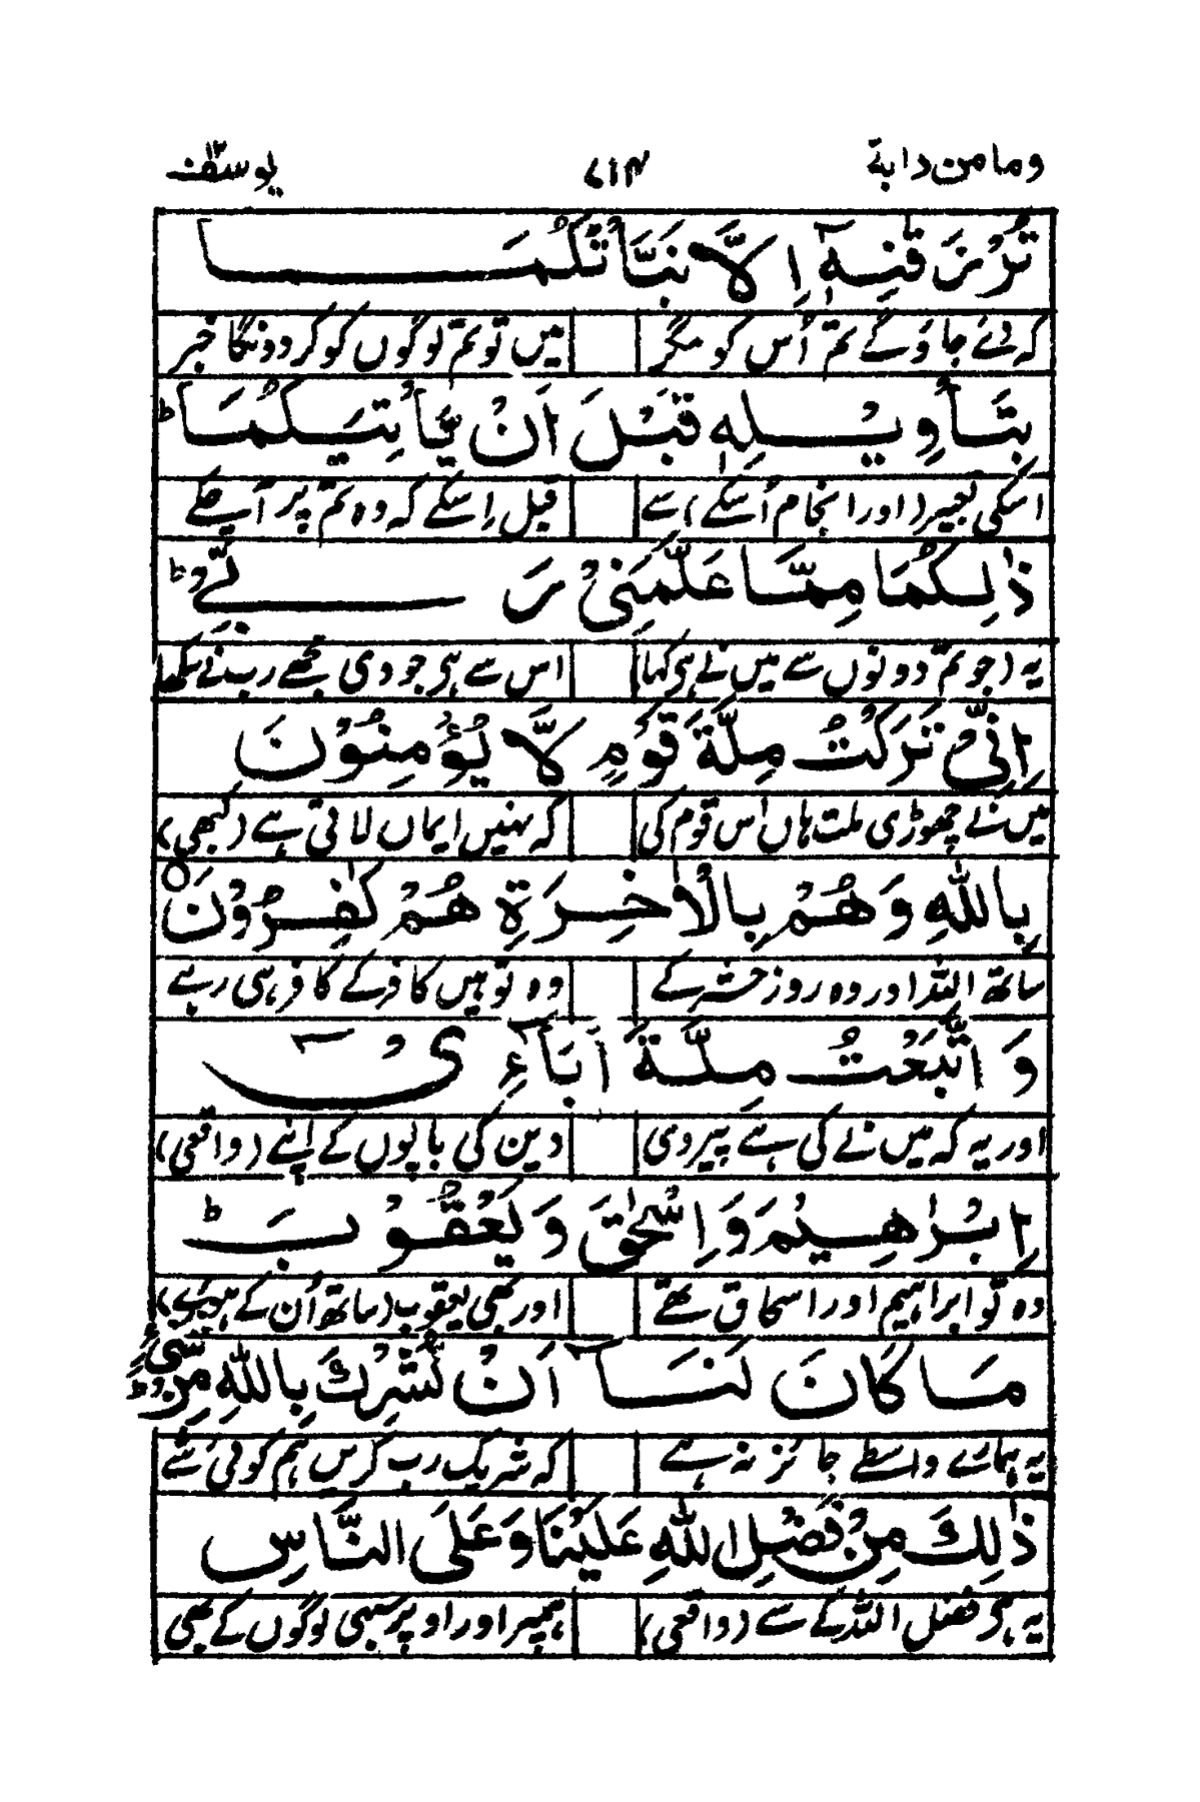 وما من دابة ۷۱۴ یوسف ۱۲
تُرْزَقٰنِهٖۤ اِلَّا نَبَّاْتُكُمَا
کہ دئے جاؤگے تم اُس کو مگر میں تو تم لوگوں کو کردونگا خبر
بِتَاْوِیْلِهٖ قَبْلَ اَنْ یَّاْتِیَكُمَا ؕ
اسکی تعبیر (اور انجام اُسکے) سے قبل اِسکے کہ وہ تم پر آسکے
ذٰلِكُمَا مِمَّا عَلَّمَنِیْ رَبِّیْ ؕ
یہ (جو تم دونوں سے میں نے ہی کہا) اس سے ہی جو دی مجھے رب نے سکھا
اِنِّیْ تَرَكْتُ مِلَّةَ قَوْمٍ لَّا یُؤْمِنُوْنَ
میں نے چھوڑی ملت ہاں اُس قوم کی کہ نہیں ایماں لاتی ہے (کبھی)
بِاللّٰهِ وَ هُمْ بِالْاٰخِرَةِ هُمْ كٰفِرُوْنَ ۝
ساتھ اللہ اور وہ روز حشر کے وہ تو ہیں کافر کے کافر ہی رہے
وَ اتَّبَعْتُ مِلَّةَ اٰبَآءِیْۤ
اور یہ کہ میں نے کی ہے پیروی دین کی باپوں کے اپنے (واقعی)
اِبْرٰهِیْمَ وَ اِسْحٰقَ وَ یَعْقُوْبَ ؕ
وہ تو ابراہیم اور اسحاق تھے اور بھی یعقوب (ساتھ اُن کے ہوئے)
مَا كَانَ لَنَاۤ اَنْ نُّشْرِكَ بِاللّٰهِ مِنْ شَیْءٍ ؕ
یہ ہمارے واسطے جائز نہ ہے کہ شریک رب کریں ہم کوئی شے
ذٰلِكَ مِنْ فَضْلِ اللّٰهِ عَلَیْنَا وَ عَلَی النَّاسِ
یہ ہی فضل اللہ کے سے (واقعی) ہمپر اور اوپر سبھی لوگوں کے بھی